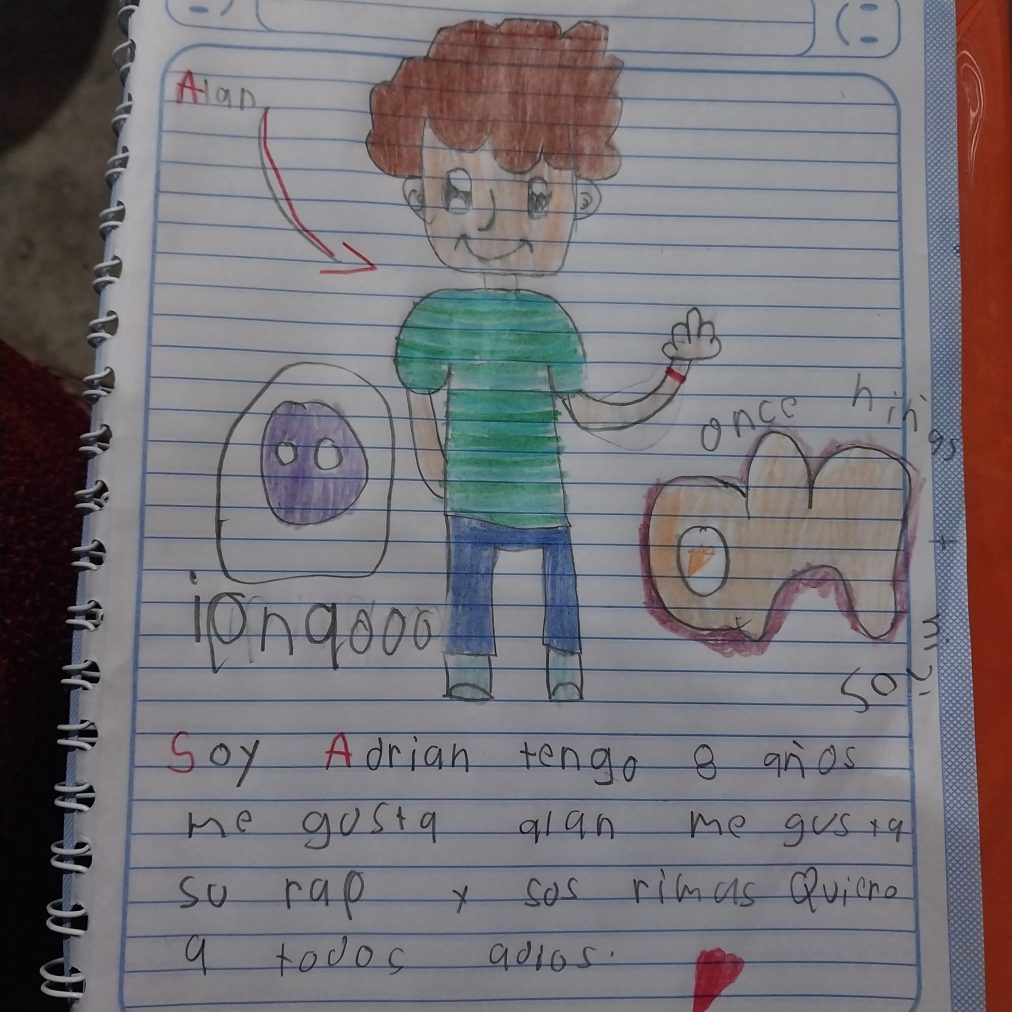 Alan
once
ionqooo
50
Soy Adrian tengo 8 años
me gusta alan me gusta
su rap y sos rimas Quiero
a todos adios.